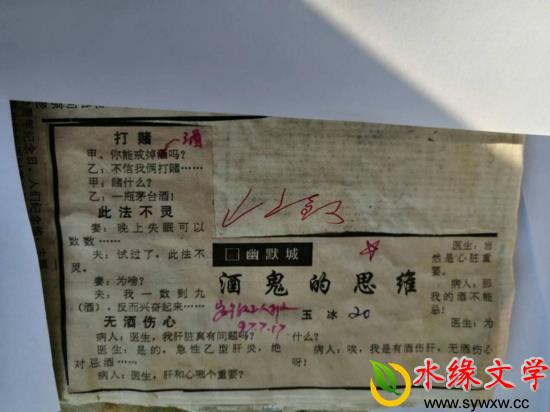 打赌
甲:你能戒掉酒吗?
乙:不信我俩打赌……
甲:赌什么?
乙:一瓶茅台酒!
此法不灵
妻:晚上失眠可以
数数……
夫:试过了,此法不
灵。
妻:为啥?
夫:我一数到九
(酒),反而兴奋起来……
无酒伤心
病人:医生,我肝脏真有问题吗?
医生:是的,急性乙型肝炎,绝
对忌酒……
病人:医生,肝和心哪个重要?
幽默城
酒鬼的思维
玉冰
20
97.7.17
什么?
病人:唉,我是有酒伤肝,无酒伤心
呀!
医生:当
然是心脏重
要。
病人:那
我的酒不能
忌!
医生:为
水缘文学
www.sywxw.cc